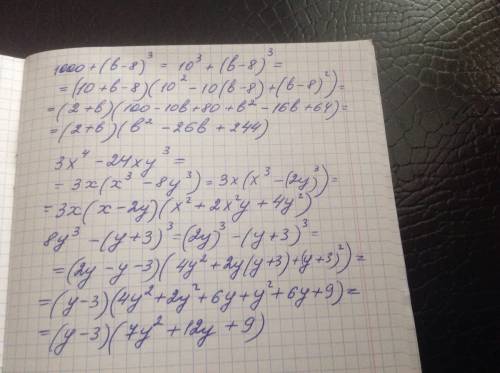 1000 + (b-8)³ = 10³ + (b-8)³ =
= (10+b-8)(10² - 10(b-8) + (b-8)²) =
= (2+b)(100 - 10b + 80 + b² - 16b + 64) =
= (2+b)(b² - 26b + 244)
3x⁴ - 24xy³ =
= 3x(x³ - 8y³) = 3x(x³ - (2y)³) =
= 3x(x - 2y)(x² + 2x²y + 4y²)
8y³ - (y+3)³ = (2y)³ - (y+3)³ =
= (2y - y - 3)(4y² + 2y(y+3) + (y+3)²) =
= (y-3)(4y² + 2y² + 6y + y² + 6y + 9) =
= (y-3)(7y² + 12y + 9)